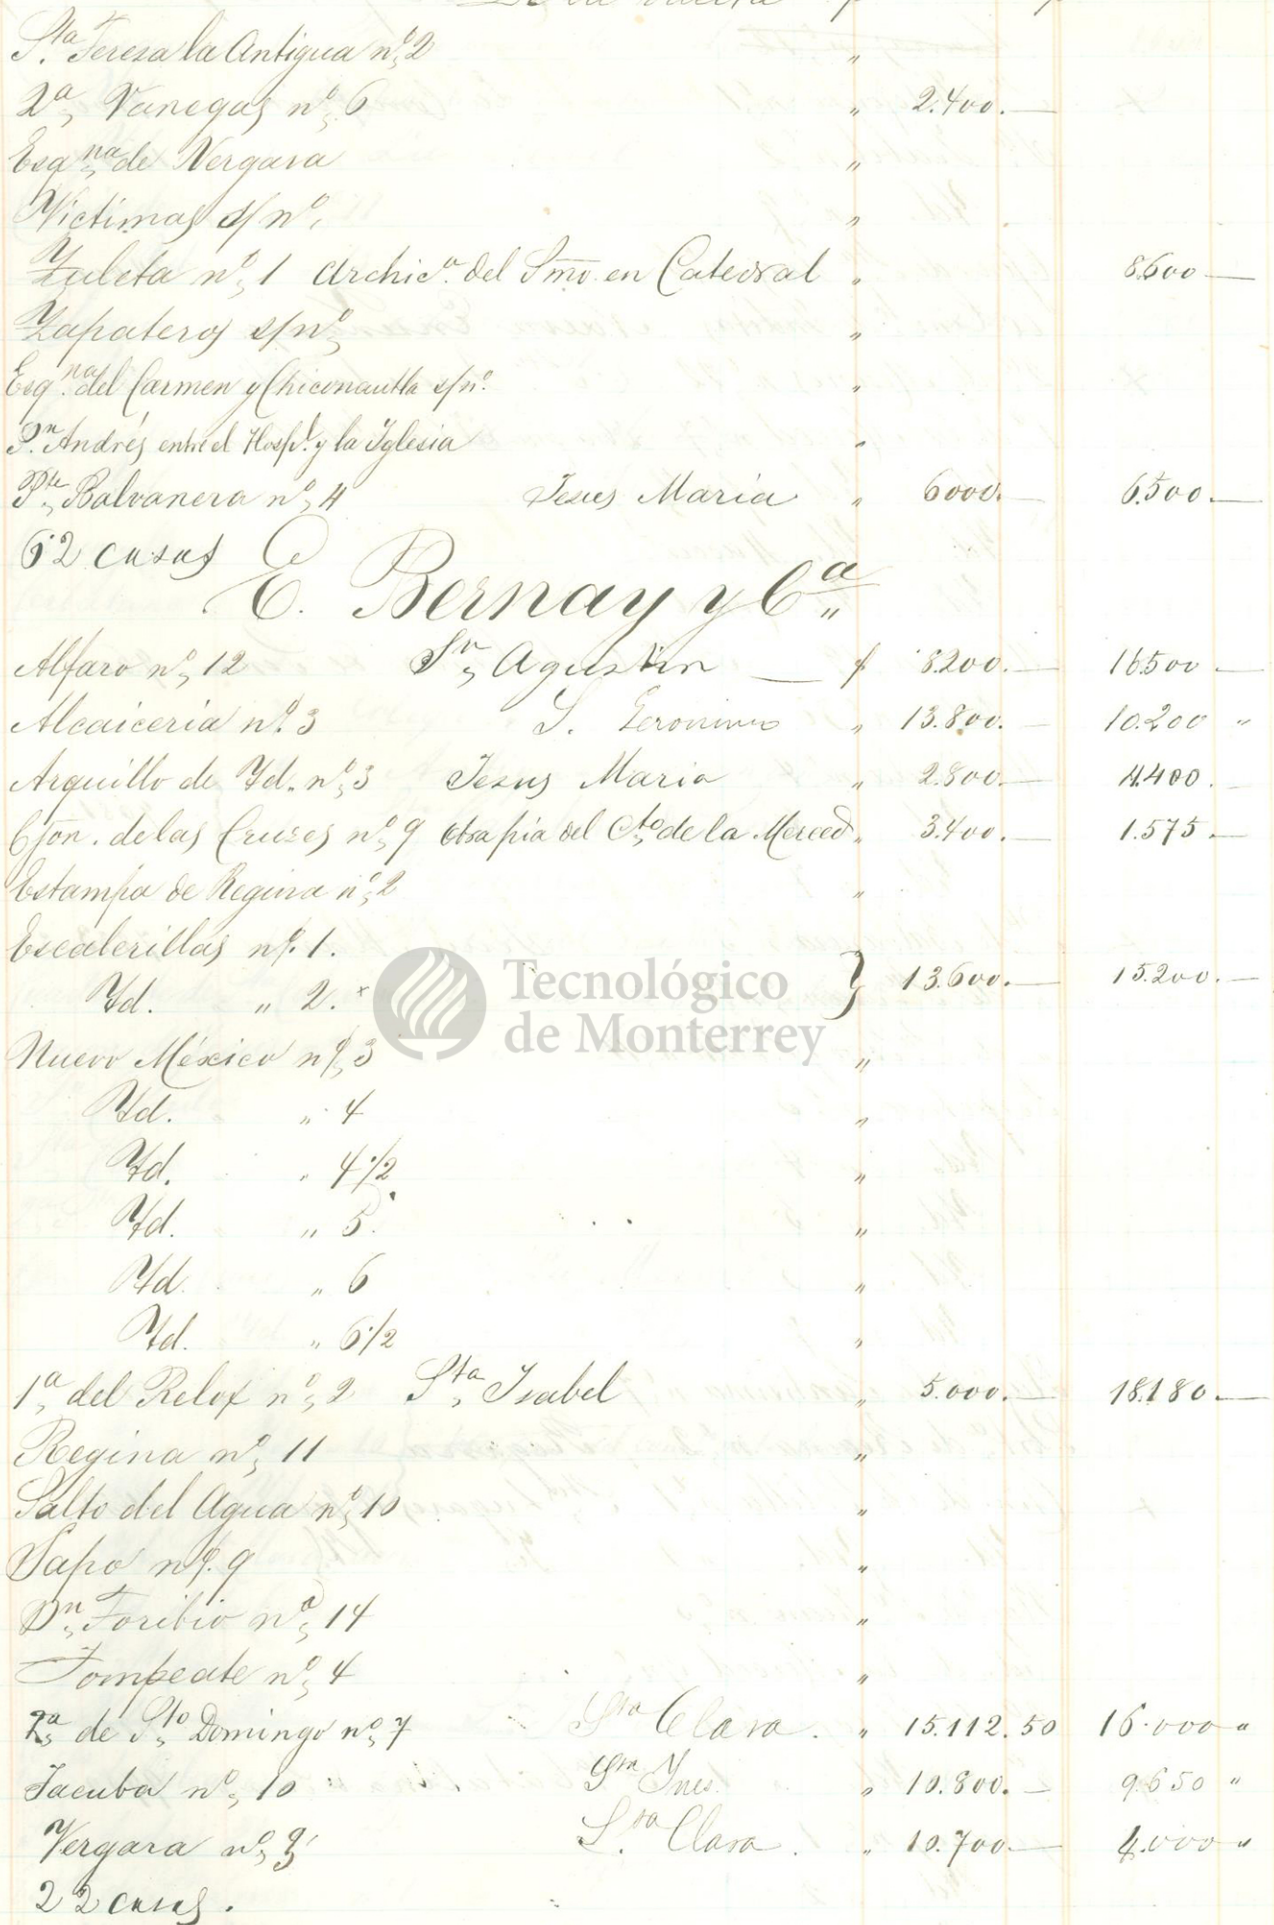 De la vuelta
Sta. Teresa la Antigua nº 2 "
2ª Vanegas nº 6 " 2.400.—
Esqna de Vergara "
Victimas s/nº. "
Zuleta nº 1 Archicª. del Smo. en Catedral " 8.600—
Zapateros s/nº "
Esqna. del Carmen y Chiconautla s/nº. "
Sn. Andrés entre el Hospl. y la Iglesia "
Pte. Balvanera nº 4 Jesus Maria " 6000.— 6.500.—
62 casas
E. Bernay y Cª
Alfaro nº 12 Sn. Agustin — $ 8.200.— 16.500—
Alcaiceria nº. 3 S. Geronimo " 13.800.— 10.200 "
Arquillo de Yd. nº 3 Jesus Maria " 2.800.— 4.400.—
Cjon. de las Cruses nº 9 Obra pia del Cto. de la Merced " 3.400.— 1.575.—
Estampa de Regina nº 2 "
Escalerillas nº. 1.
Yd. " 2. } 13.600.— 15.200.—
Tecnológico
de Monterrey
Nuevo México nº 3 "
Yd. " 4 "
Yd. " 4 1/2 "
Yd. " 5. "
Yd. " 6 "
Yd. " 6 1/2 "
1ª del Relox nº 2 Sta. Isabel " 5.000.— 18.180.—
Regina nº 11 "
Salto del Agua nº 10 "
Sapo nº. 9 "
Dn. Toribio nº 14 "
Tompeate nº 4 "
2ª de Sto. Domingo nº 7 Sta Clara. " 15.112.50 16.000 "
Tacuba nº 10 Sta Ines. " 10.800.— 9.650 "
Vergara nº Sta. Clara. " 10.700.— 4.000 "
22 casas.